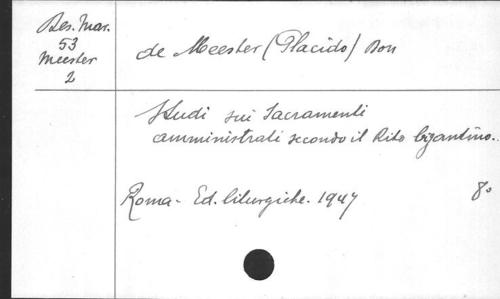 Bes. Mar.
53
Meester
2
de Meester (Placido) Don
Studi sui Sacramenti
amministrati secondo il Rito bizantino.
Roma - Ed. liturgiche. 1947 8°